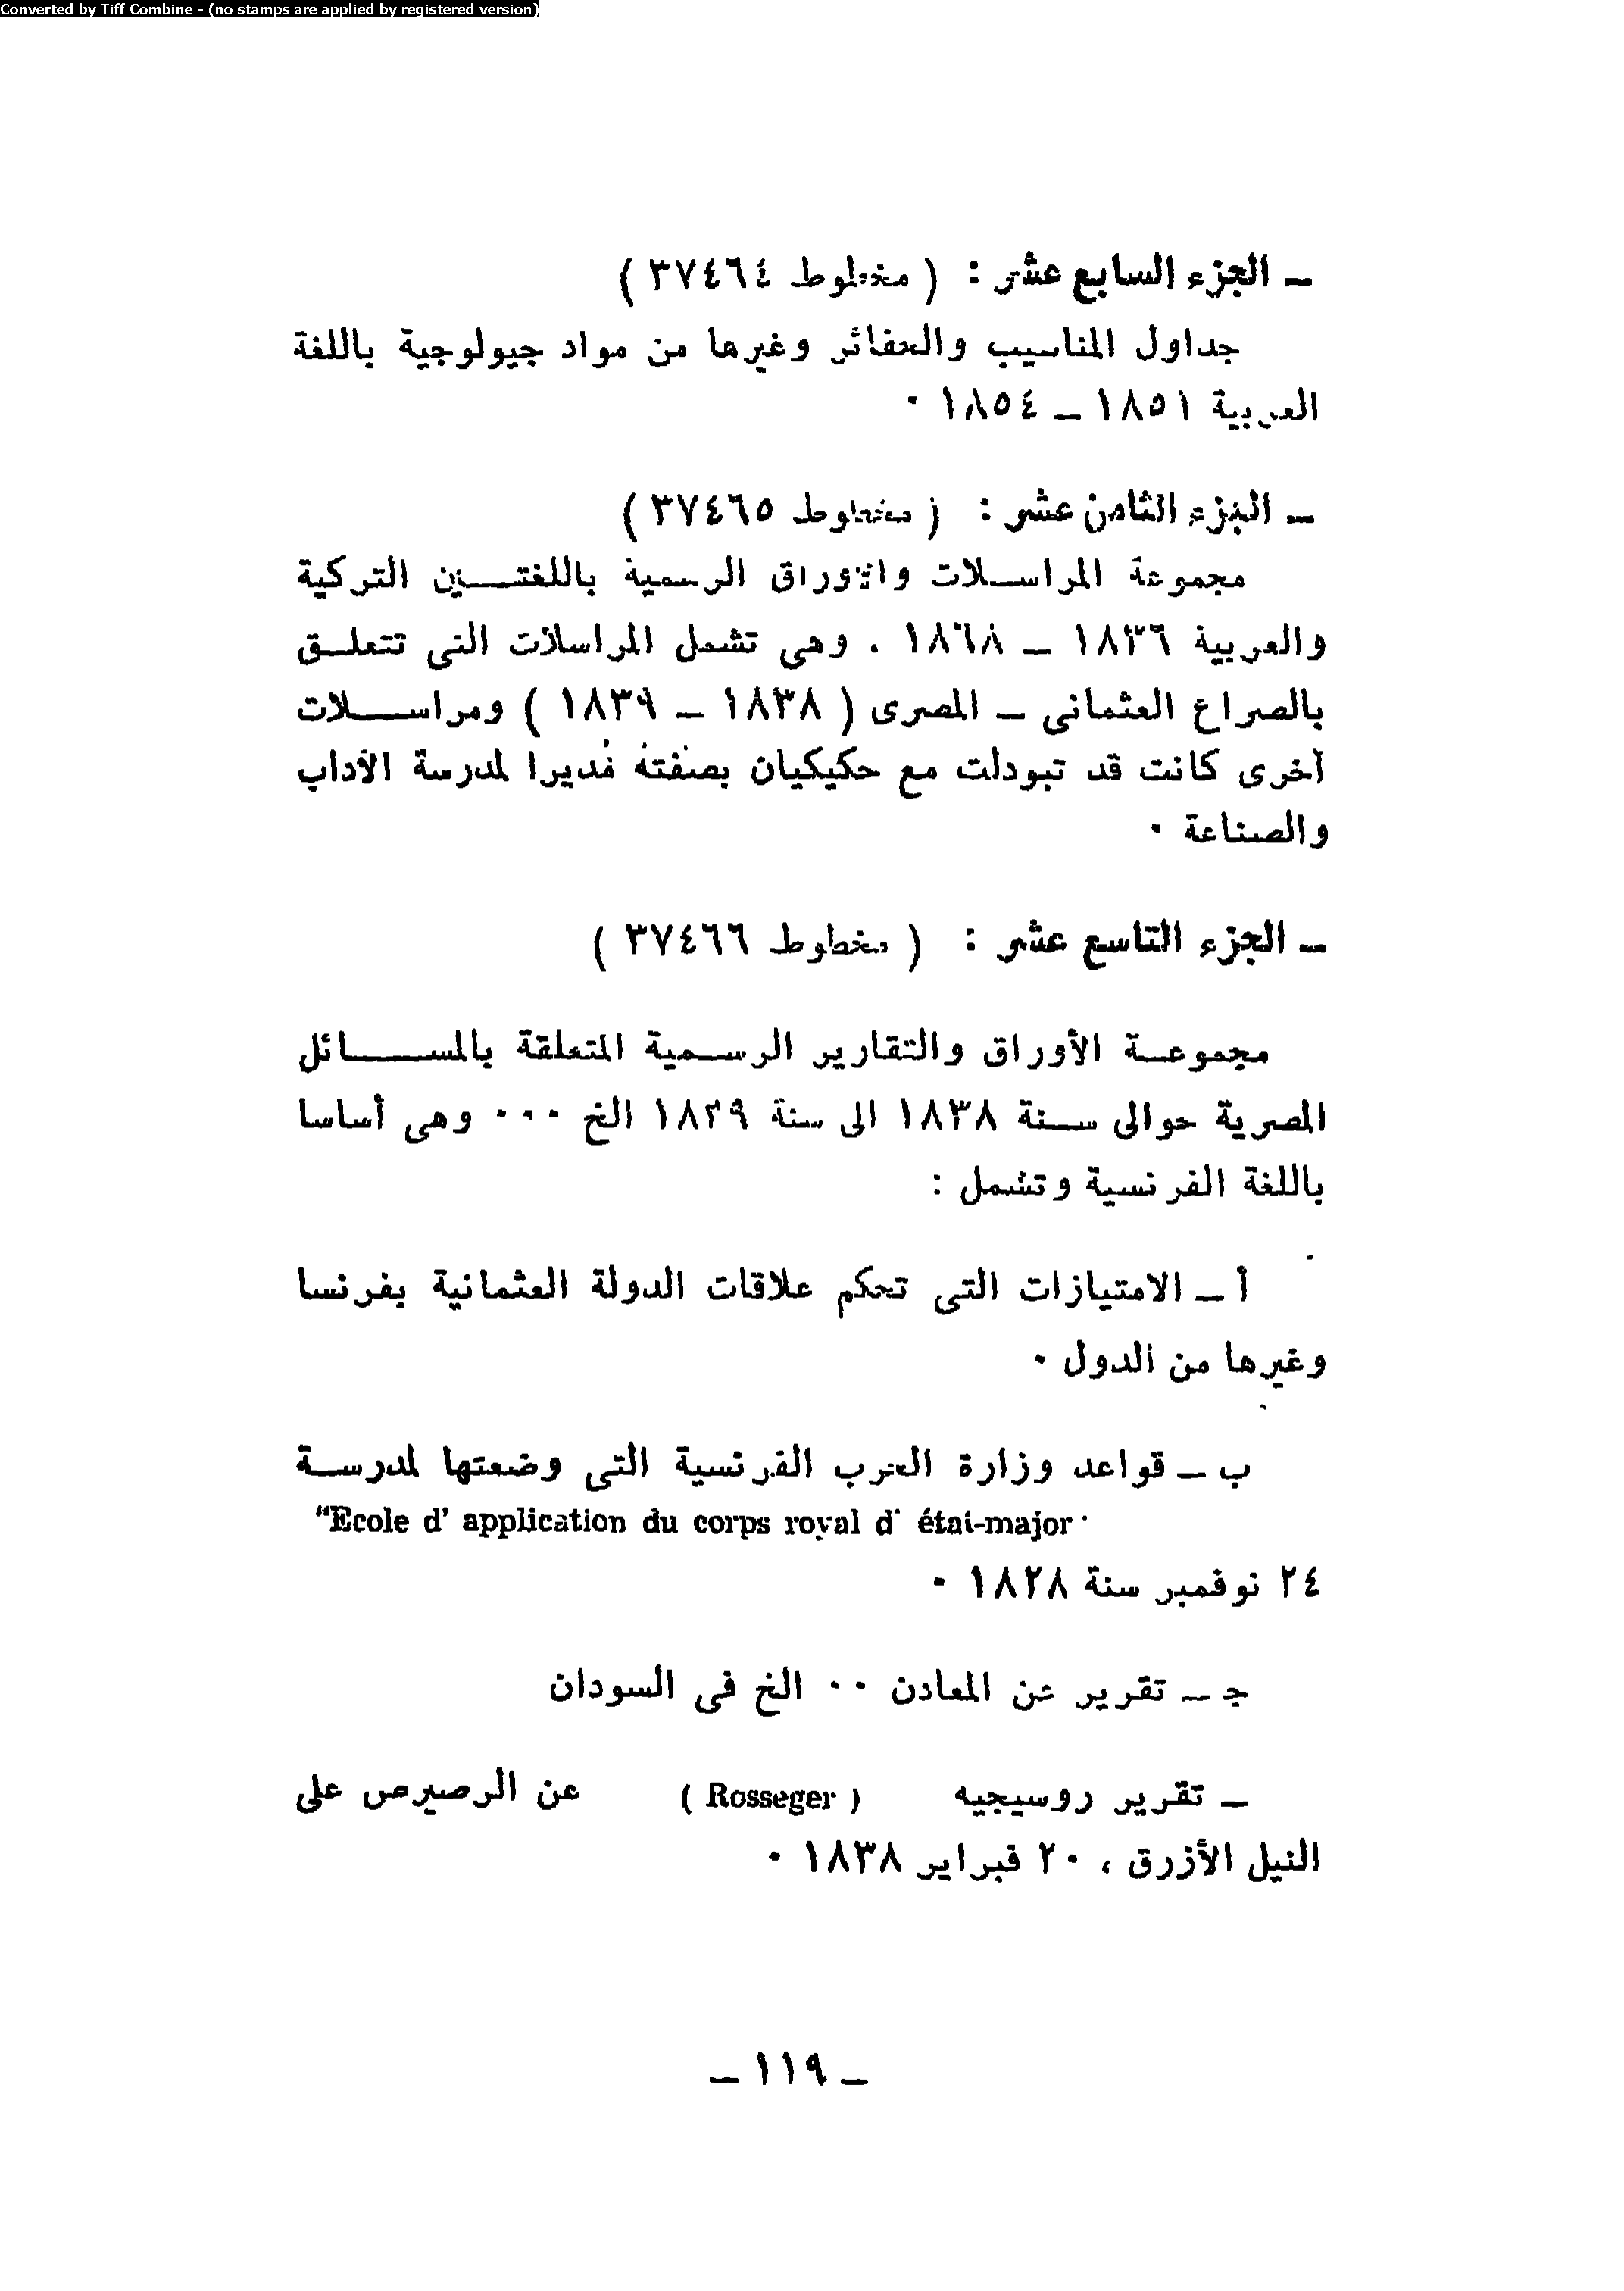 Converted by Tiff Combine - (no stamps are applied by registered version)
ـ الجزء السابع عشر : ( مخطوط ٣٧٤٦٤ )
جداول المناسيب والحفائر وغيرها من مواد جيولوجية باللغة
العربية ١٨٥١ ـ ١٨٥٤ ٠
ـ الجزء الثامن عشر : ( مخطوط ٣٧٤٦٥ )
مجموعة المراسلات والأوراق الرسمية باللغتين التركية
والعربية ١٨٣٦ ـ ١٨٦٨ . وهى تشمل المراسلات التى تتعلق
بالصراع العثمانى ـ المصرى ( ١٨٣٨ ـ ١٨٣٩ ) ومراسلات
أخرى كانت قد تبودلت مع حكيكيان بصفته مديرا لمدرسة الآداب
والصناعة ٠
ـ الجزء التاسع عشر : ( مخطوط ٣٧٤٦٦ )
مجموعة الأوراق والتقارير الرسمية المتعلقة بالمسائل
المصرية حوالى سنة ١٨٣٨ الى سنة ١٨٣٩ الخ ٠٠٠ وهى أساسا
باللغة الفرنسية وتشمل :
أ ـ الامتيازات التى تحكم علاقات الدولة العثمانية بفرنسا
وغيرها من الدول ٠
ب ـ قواعد وزارة الحرب الفرنسية التى وضعتها لمدرسة
"Ecole d' application du corps royal d' état-major"
٢٤ نوفمبر سنة ١٨٢٨ ٠
جـ ـ تقرير عن المعادن ٠٠ الخ فى السودان
ـ تقرير روسيجيه ( Rosseger ) عن الرصيرص على
النيل الأزرق ، ٢٠ فبراير ١٨٣٨ ٠
ـ ١١٩ ـ